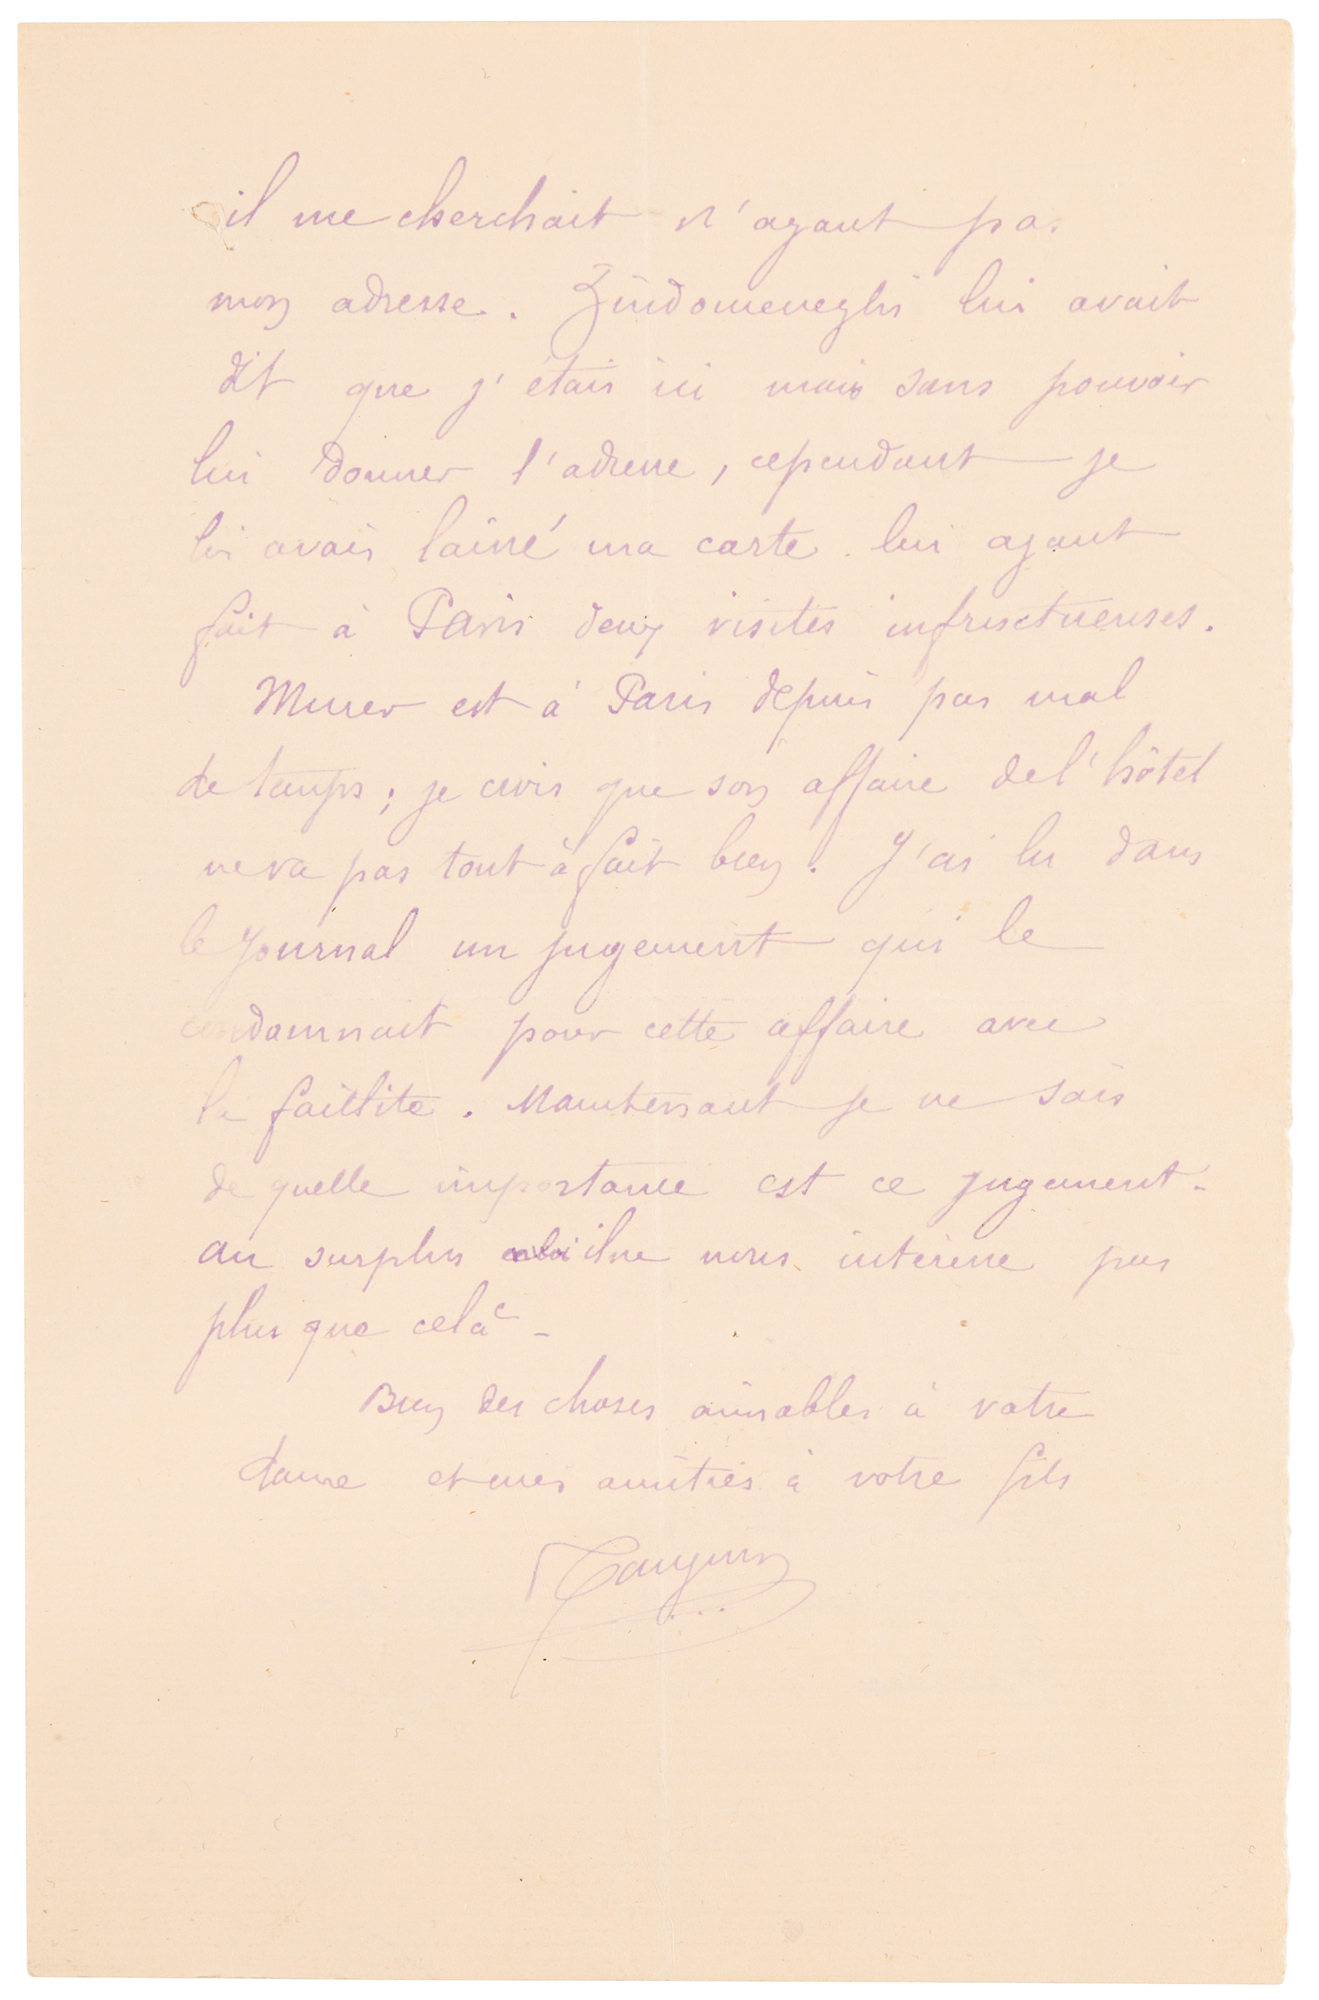 il me cherchait n'ayant pas
mon adresse. Zindomeneghi lui avait
dit que j'étais ici mais sans pouvoir
lui donner l'adresse, cependant je
lui avais laissé ma carte. lui ayant
fait à Paris deux visites infructueuses.
Murer est à Paris depuis pas mal
de temps; je crois que son affaire de l'hôtel
ne va pas tout à fait bien. J'ai lu dans
le journal un jugement qui le
condamnait pour cette affaire avec
la faillite. Maintenant je ne sais
de quelle importance est ce jugement -
au surplus il ne nous intéresse pas
plus que celà -
Bien des choses aimables à votre
dame et mes amitiés à votre fils